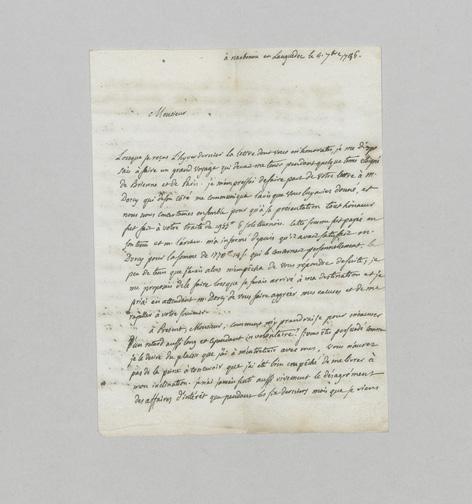 à narbonne en Languedoc le 4. 7bre 1786.
Monsieur
Lorsque je reçus l'hyver dernier la lettre dont vous m'honorates, je me dispo
sais à faire un grand voyage qui devait me tenir pendant quelque tems éloigné
de Brienne et de Paris. je m'empressai de faire part de votre lettre à m.
Dorcy qui de son côté me communiqua l'avis que vous lui aviez donné, et
nous nous concertames ensemble pour qu'à sa présentation tout honneur
fut fait à votre traite de 1937# 8 s tournois. Cette somme fut payée
et m. m'a informé depuis qu'il avait satisfait m.
Dorcy pour la somme de 1770# qui le concernait personnellement. le
peu de tems que j'avais alors m'empêcha de vous répondre de suite; je
me proposai de le faire lorsque je serais arrivé à ma destination et je
priai en attendant m. Dorcy de vous faire agréer mes excuses et de me
rapeler à votre souvenir.
à Présent, Monsieur, comment m'y prendrai-je pour m'excuser
d'un retard aussi long et cependant involontaire? Si vous êtes persuadé comme
je le désire du plaisir que j'ai à m'entretenir avec vous, vous n'aurez
pas de la peine à concevoir que j'ai été bien empêché de me livrer à
mon inclination. jamais senti aussi vivement le désagrément
des affaires d'intérêt que pendant les six derniers mois que je viens